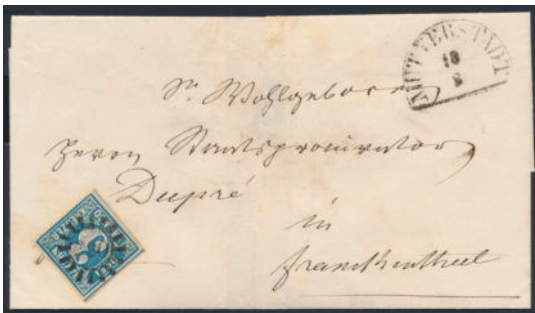 MUTTERSTADT
18
8
Sr. Wohlgeboren
Herrn Staatsprocurator
Dupré
in
Frankenthal